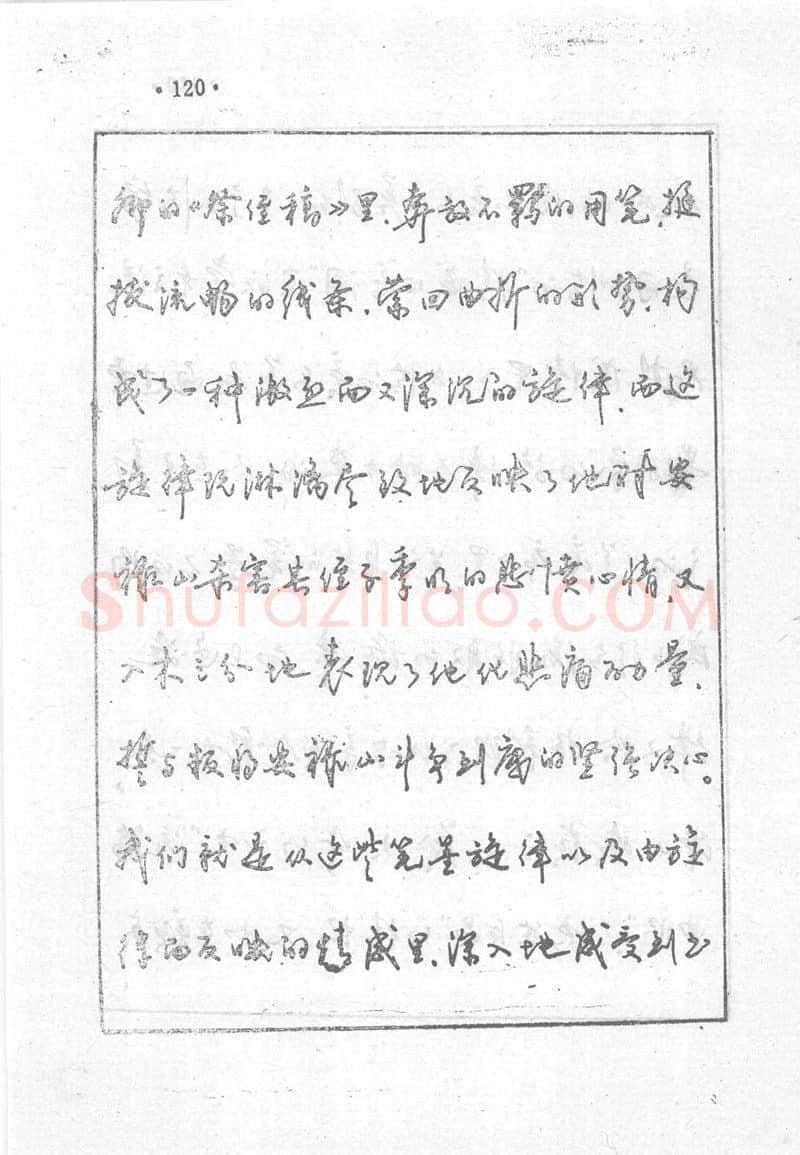 ·120·
卿的《祭侄稿》里，奔放不羁的用笔，挺
拔流畅的线条，萦回曲折的形势，构
成了一种激烈而又深沉的旋律，而这
旋律既淋漓尽致地反映了他对安
禄山杀害其侄子季明的悲愤心情，又
入木三分地表现了他化悲痛为力量，
誓与叛将安禄山斗争到底的坚强决心。
我们就是从这些笔墨旋律以及由旋
律而反映的情感里，深入地感受到书
Shufaziliao.COM